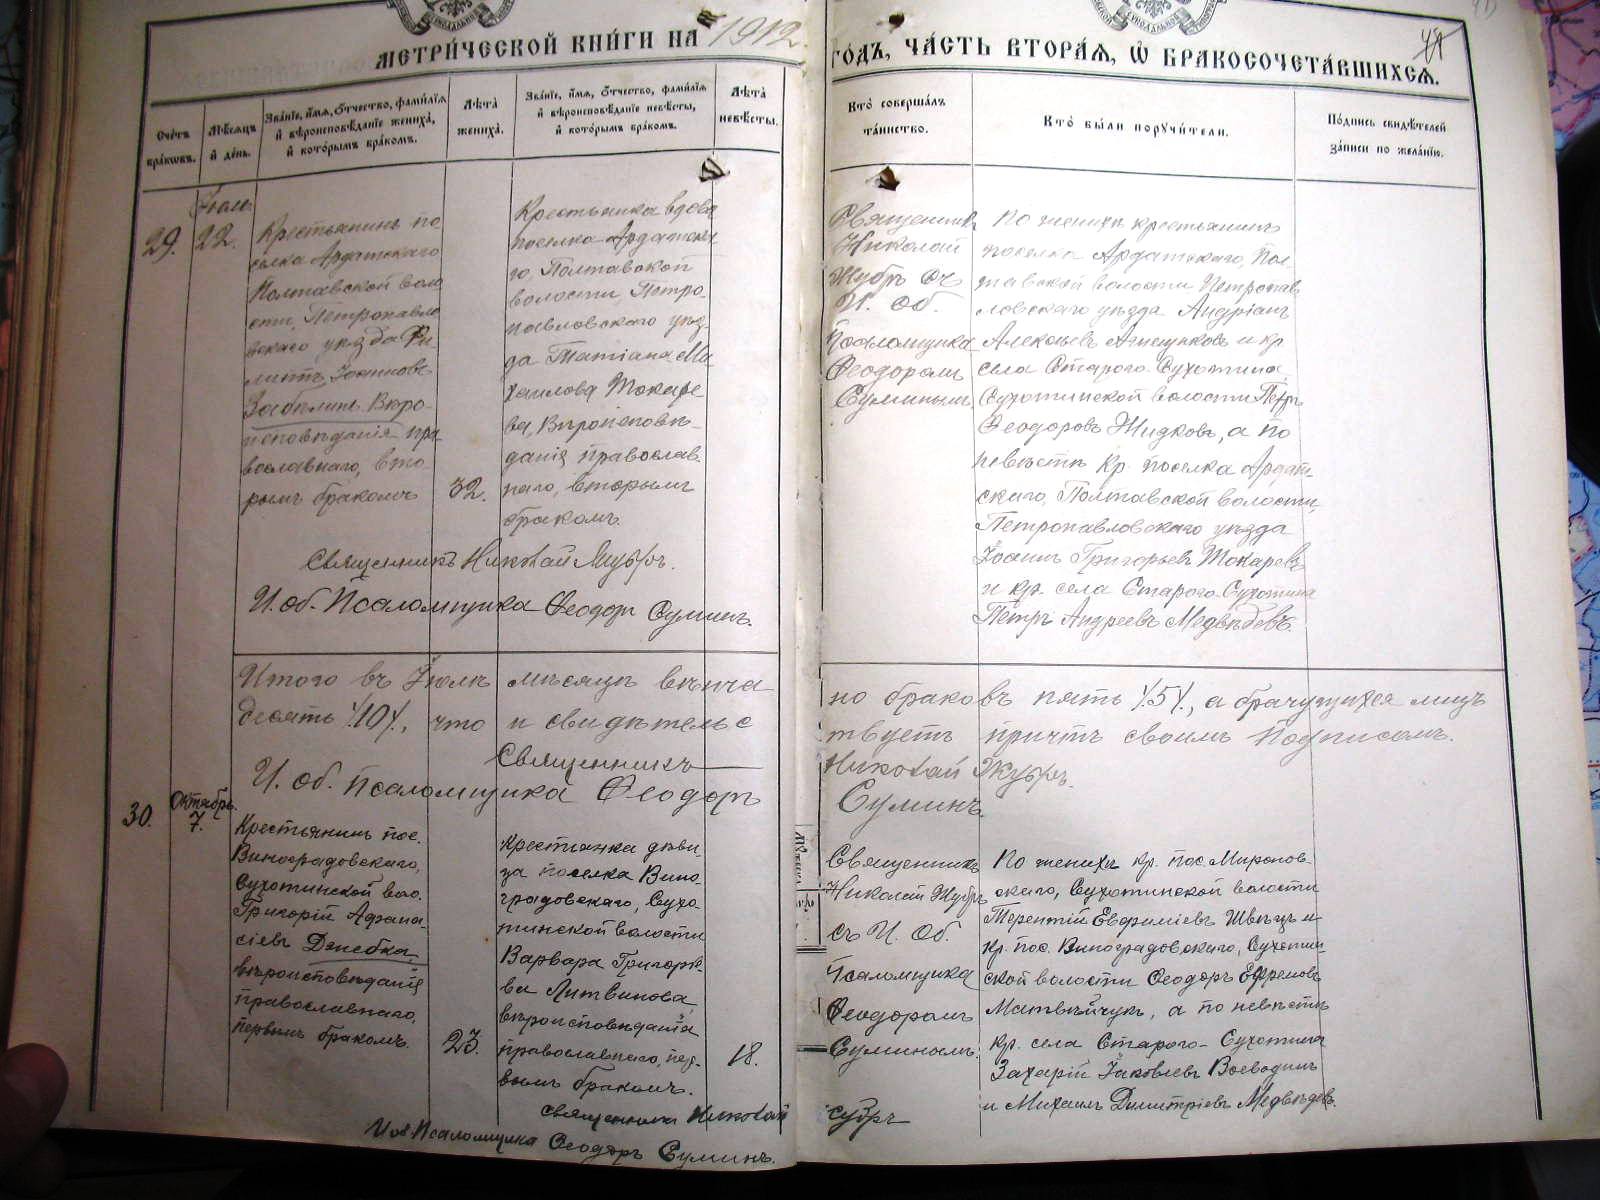 МЕТРИ́ЧЕСКОЙ КНИ́ГИ НА 1912
ГОДЪ, ЧА́СТЬ ВТОРА́Я, Ѡ БРАКОСОЧЕТА́ВШИХСЯ.
Счётъ браковъ.
Мѣсяцъ и день.
Зва́нїе, и́мя, ѻ҆тчество, фами́лїя и вѣроисповѣ́данїе жениха̀, и кото́рымъ бра́комъ.
Лѣта̀ жениха̀.
Зва́нїе, и́мя, ѻ҆тчество, фами́лїя и вѣроисповѣ́данїе невѣ́сты, и кото́рымъ бра́комъ.
Лѣта̀ невѣ́сты.
Кто̀ соверша́лъ та́инство.
Кто̀ бы́ли поручи́тели.
По́дпись свидѣ́телей за́писи по жела́нїю.
29.
Іюль
22.
Крестьянинъ по
селка Ардатскаго
Полтавской воло
сти, Петропавло
вскаго уѣзда Фи
липпъ Іоанновъ
Забѣлинъ. Вѣро
исповѣданія пра
вославнаго, вто
рымъ бракомъ
32.
Крестьянка вдова
поселка Ардатска
го, Полтавской
волости, Петро
павловскаго уѣз
да Татіана Ми
хаилова Токаре
ва, Вѣроисповѣ
данія православ
наго, вторымъ
бракомъ.
Священникъ
Николай
Жубръ съ
И. Об.
Псаломщика
Ѳеодоромъ
Суминымъ
По женихѣ крестьянинъ
поселка Ардатскаго, Пол
тавской волости Петропав
ловскаго уѣзда Андріанъ
Алексѣевъ и кр
села Стараго-Сухотина
Сухотинской волости Петръ
Ѳеодоровъ Жидковъ, а по
невѣстѣ Кр. поселка Ардат
скаго, Полтавской волости
Петропавловскаго уѣзда
Іоаннъ Григорьевъ Токаревъ
и кр. села Стараго-Сухотина
Петръ Андреевъ Медвѣдевъ.
Священникъ Николай Жубръ.
И. об. Псаломщика Ѳеодоръ Суминъ.
Итого въ Іюлѣ мѣсяцѣ вѣнча
но браковъ пять /5/, а брачущихся лицъ
десять /10/, что и свидѣтельс
твуетъ причтъ своимъ подписомъ.
Священникъ
Николай Жубръ.
И. об. псаломщика Ѳеодоръ
Суминъ.
30.
Октябрь.
7.
Крестьянинъ пос.
Виноградовскаго,
Сухотинской воло.
Григорій Аѳана
сіевъ Дзюбка,
вѣроисповѣданія
православнаго,
первымъ бракомъ.
23.
Крестьянка дѣви
ца поселка Вино
градовскаго, Сухо
тинской волости
Варвара Григорье
ва Литвинова,
вѣроисповѣданія
православнаго, пер
вымъ бракомъ.
18.
Священникъ
Николай Жубръ
съ И. Об.
Псаломщика
Ѳеодоромъ
Суминымъ.
По женихѣ кр. пос. Миронов
скаго, Сухотинской волости
Терентій Евѳиміевъ Швецъ и
кр. пос. Виноградовскаго, Сухотин
ской волости Ѳеодоръ Ефремовъ
Матвѣйчукъ, а по невѣстѣ
кр. села Стараго-Сухотина
Захарій Іаковлевъ Воеводинъ
и Михаилъ Димитріевъ Медвѣдевъ.
Священникъ Николай
И об Псаломщика Ѳеодоръ Суминъ.